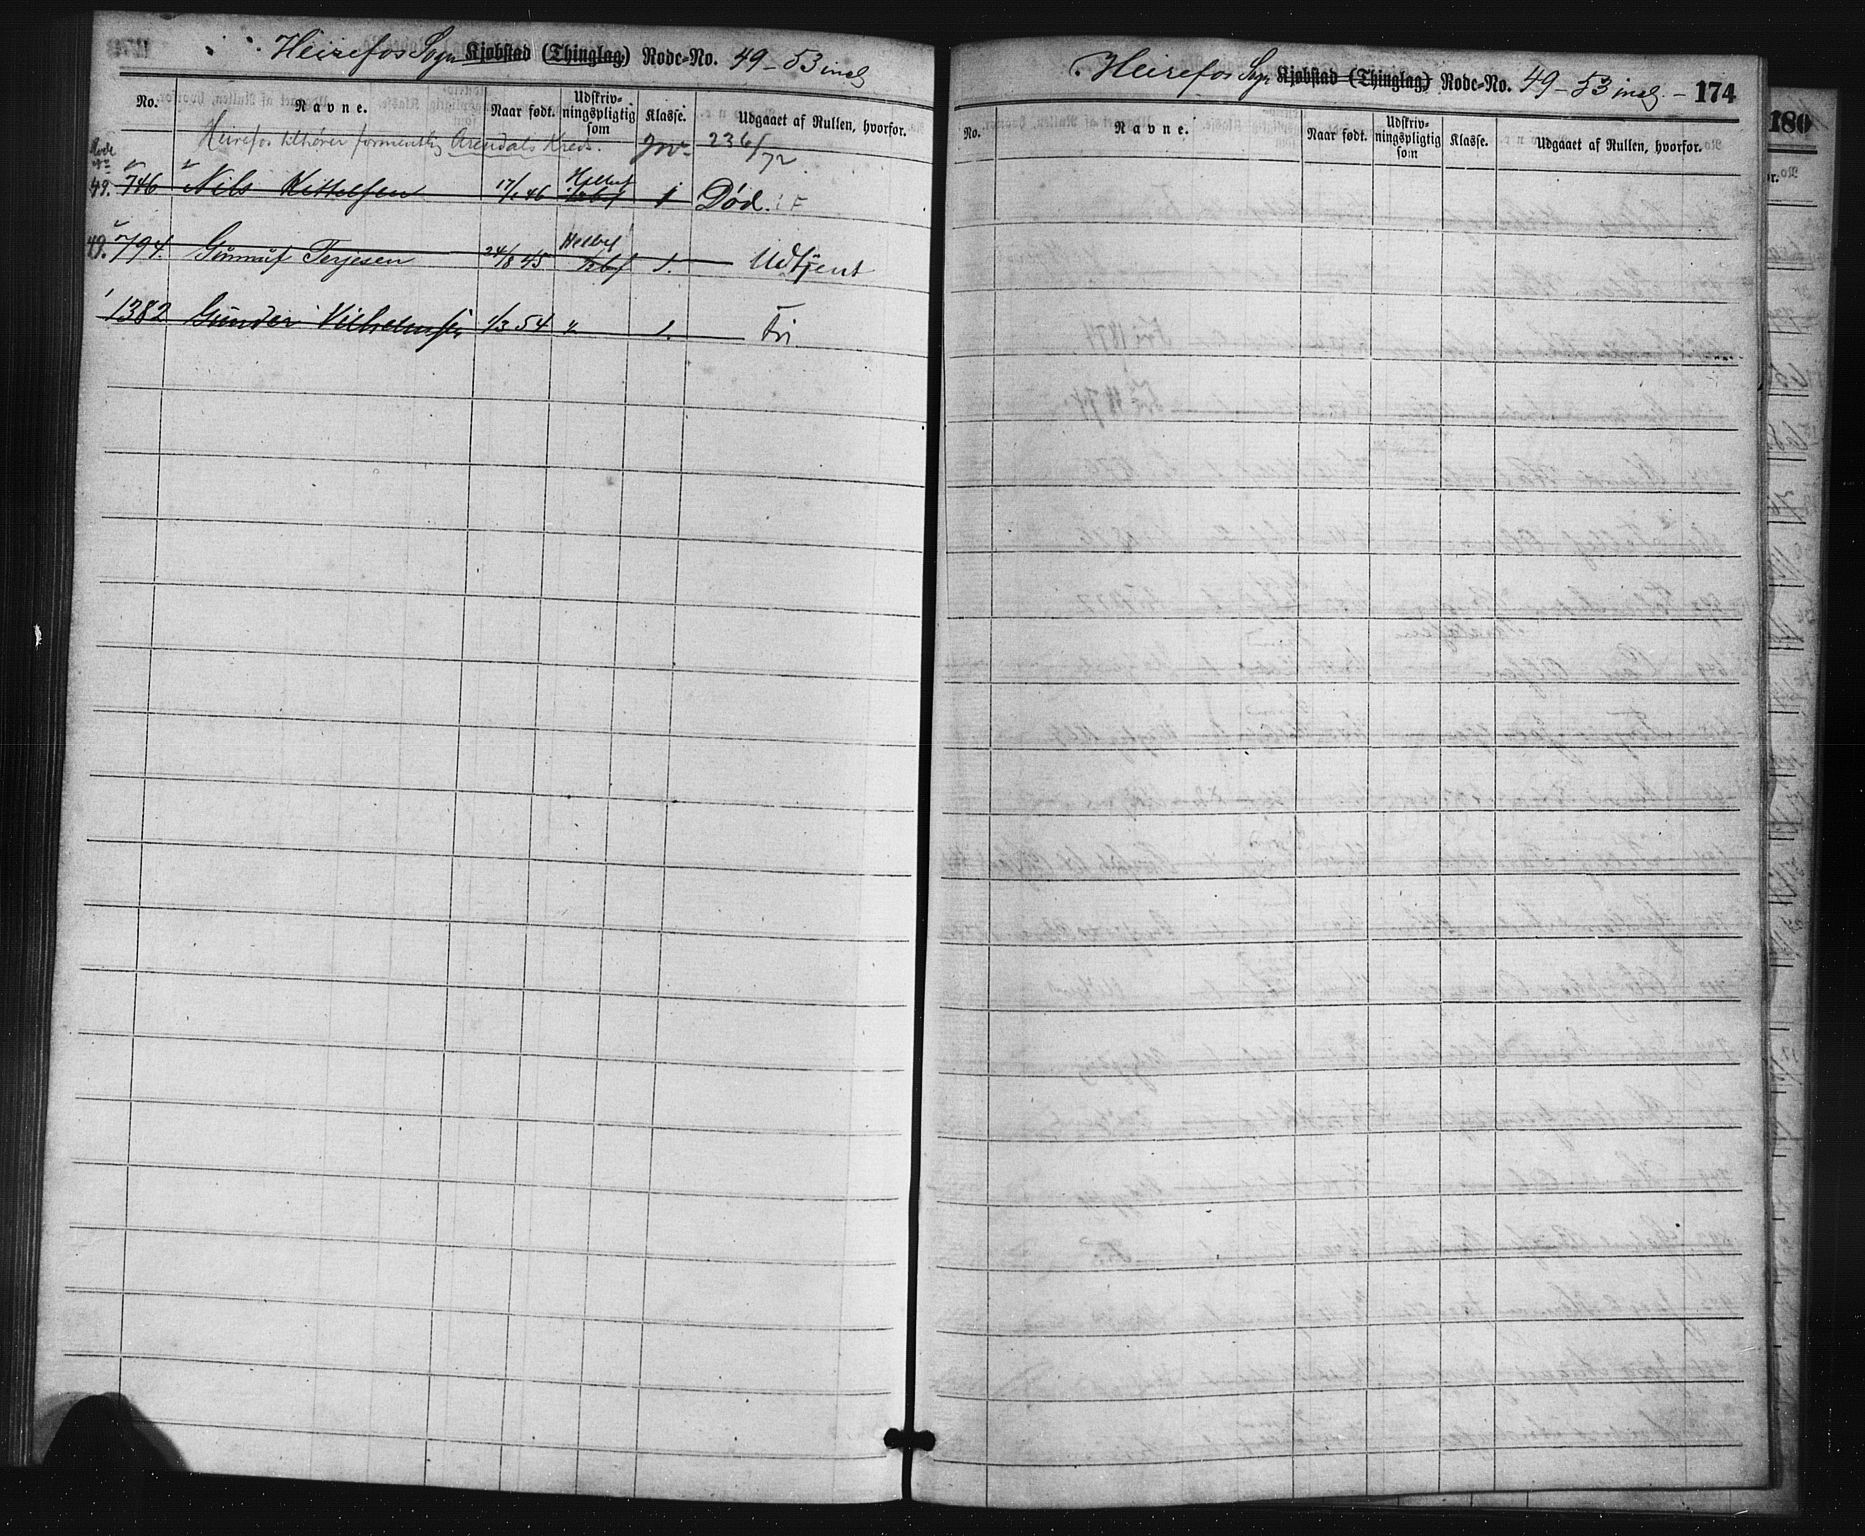 Heirefos Sogn Kjøbstad (Thinglag) Rode-No. 49-53 incl
No. Navne. Naar født. Udskrivningspligtig som Klasse. Udgaaet af Rullen, hvorfor.
Heirefos tilhører formentlig Arendals Kreds. Jvr. 236/72
Rode No
49. 746 Nils Kittelsen 17/1 46 1 Død.
49. 794. Gunnuf Terjesen 24/8 45 1. Udtjent
1382 Gunder Vilhelmsen 1/3 54 " 1. Fri
Heirefos Sogn Kjøbstad (Thinglag) Rode-No. 49-53 incl. - 174
No. Navne. Naar født. Udskrivningspligtig som Klasse. Udgaaet af Rullen, hvorfor.
180